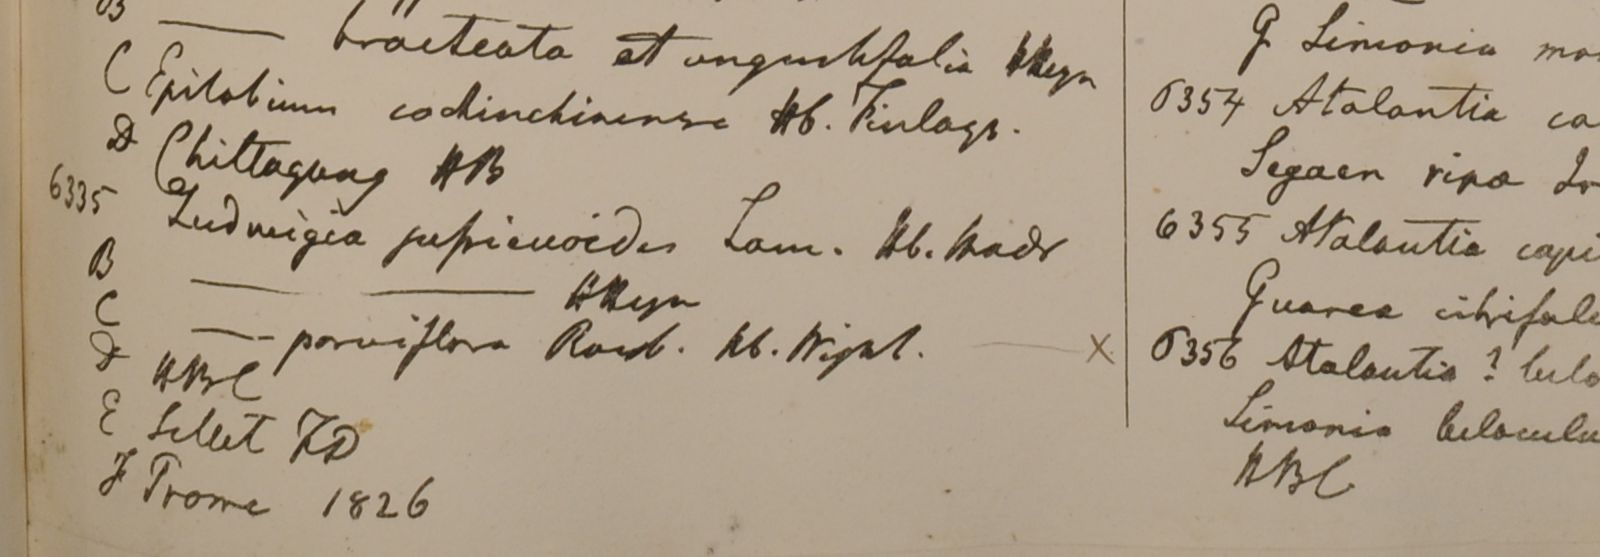 B —— bracteata et angustifolia HHeyn
C Epilobium cochinchinense Hb. Finlays.
D Chittagong HB
6335 Ludwigia jussieuoides Lam. Hb. Madr
B —— —— HHeyn
C —— parviflora Roxb. Hb. Wight.
D HBC
E Sillet FD
F Prome 1826
G Limonia
6354 Atalantia
Segaen ripa
6355 Atalantia
Guarea
6356 Atalantia ?
Limonia
HBC